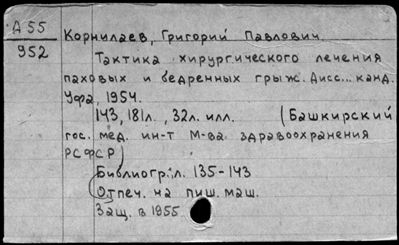 А 55
952
Корнилаев, Григорий Павлович.
Тактика хирургического лечения
паховых и бедренных грыж. Дисс... канд.
Уфа, 1954.
143, 181л., 32л. илл. (Башкирский
гос. мед. ин-т М-ва здравоохранения
РСФСР)
Библиогр: л. 135-143
Отпеч. на пиш. маш.
Защ. в 1955